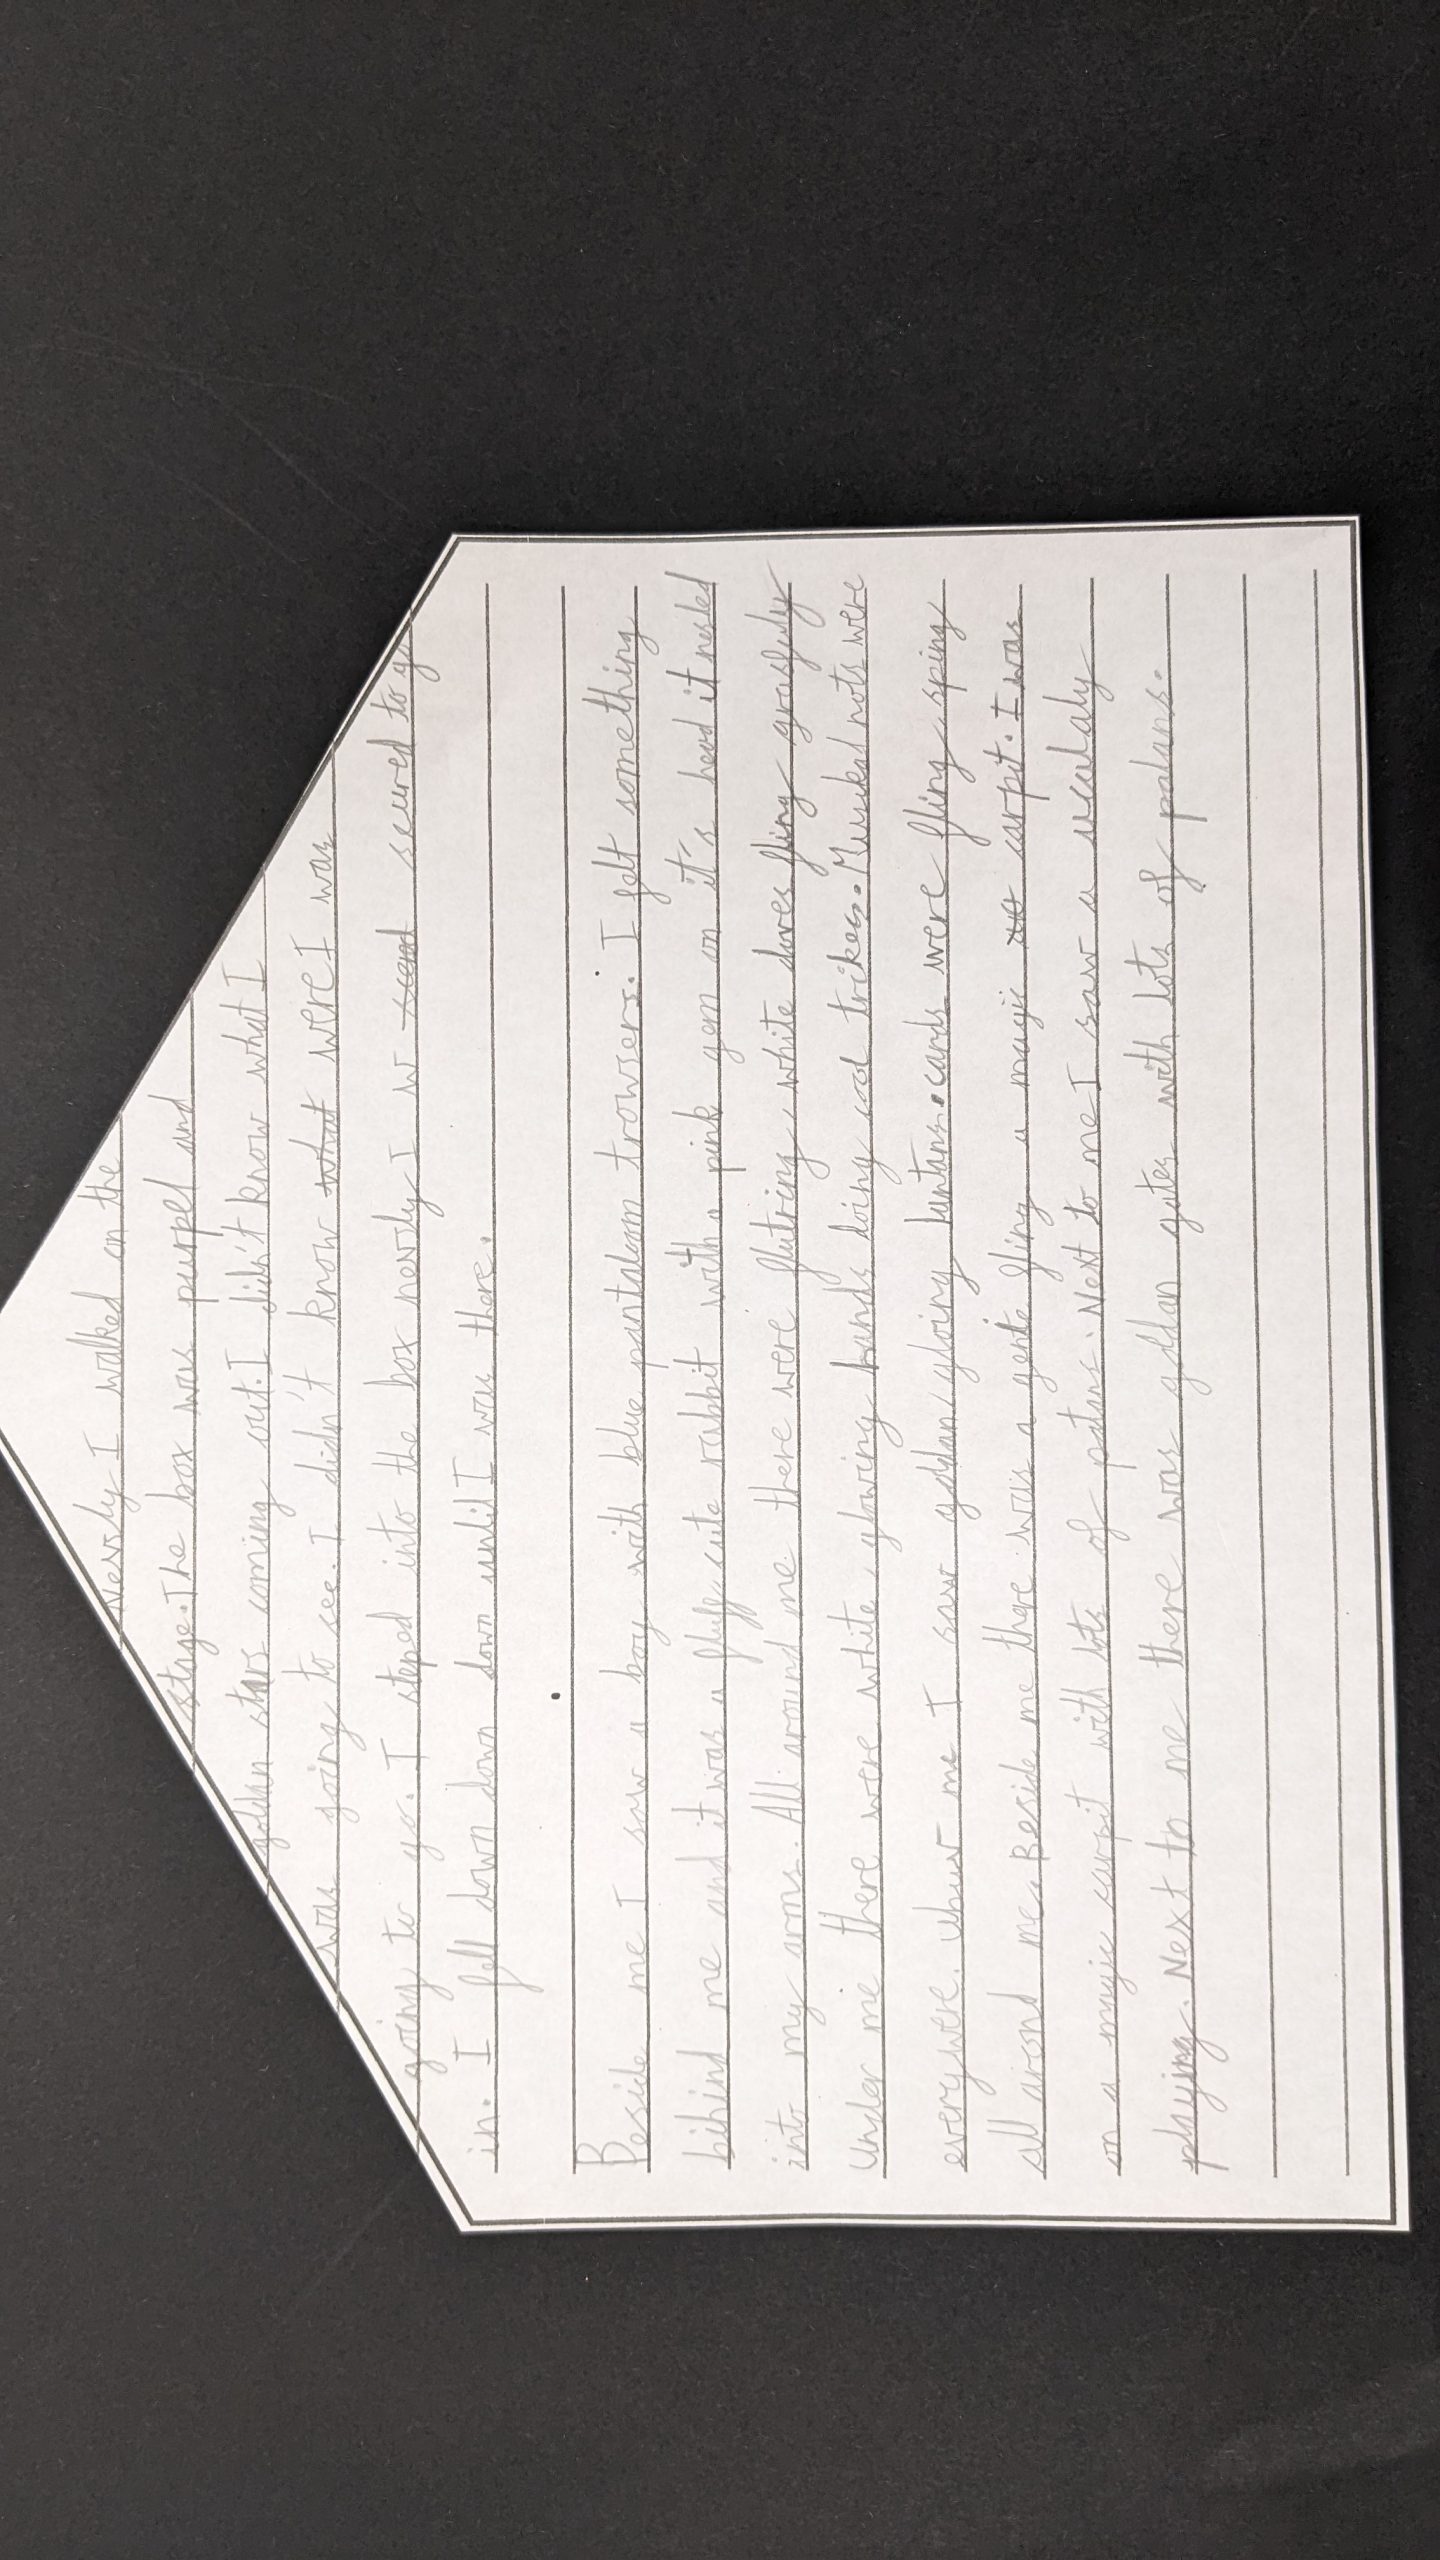 Nersly I walked on the
stage. The box was purpel and
goldan stars coming out. I didn't know what I
was going to see. I didn't know what were I was
going to go. I steped into the box nersly I w scured to go
in. I fell down down down until I was there.
Beside me I saw a boy with blue pantaloom trowsers. I felt something
behind me and it was a fluff cute rabbit with a pink gem on it's head it nesled
into my arms. All around me there were flutring white doves fling grasfuly
Under me there were white glowing hands doing cool trikes. Musikal nots were
everywere. Ubuw me I saw goldan gloing luntans. cards were fling sping
all arond me. Beside me there was a genie fling a magic carpit. I was
on a mujic carpit with lots of patans. Next to me I saw a ucalaly
playing. Next to me there was goldan gates with lots of patans.